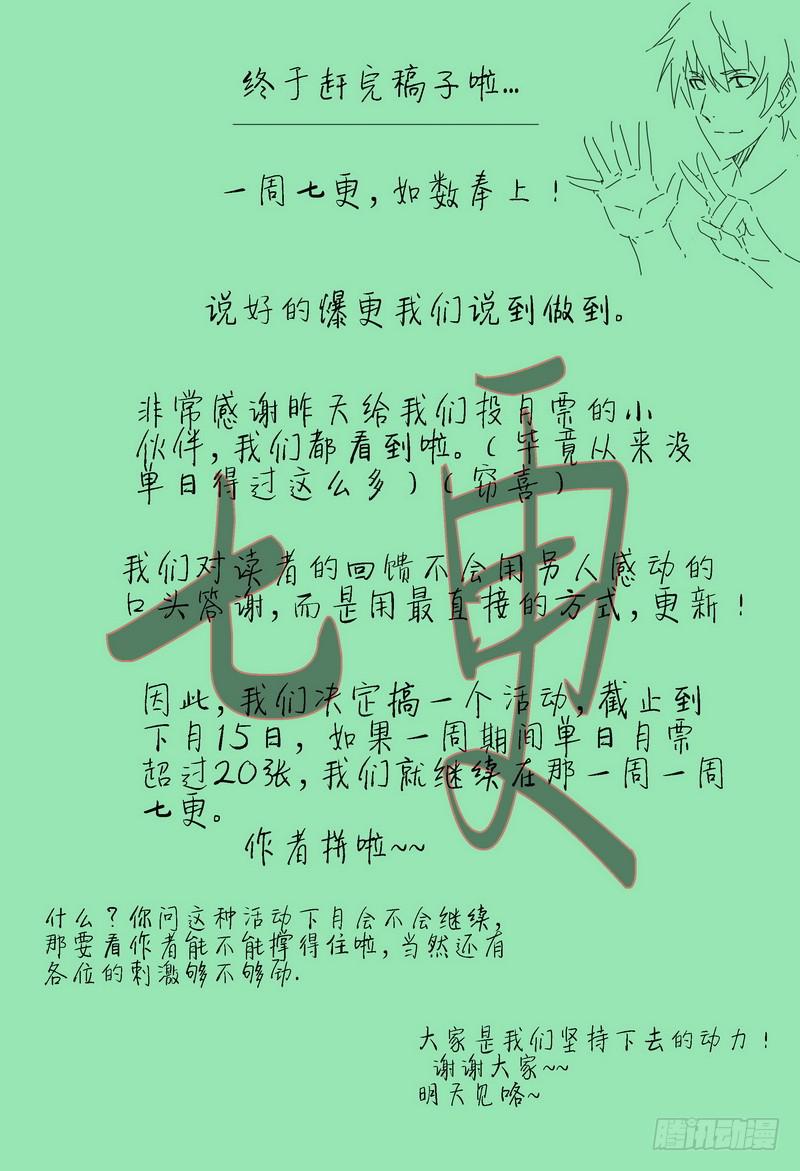 终于赶完稿子啦...
一周七更,如数奉上!
说好的爆更我们说到做到。
非常感谢昨天给我们投月票的小
伙伴,我们都看到啦。(毕竟从来没
单日得过这么多)(窃喜)
七更
我们对读者的回馈不会用另人感动的
口头答谢,而是用最直接的方式,更新!
因此,我们决定搞一个活动,截止到
下月15日,如果一周期间单日月票
超过20张,我们就继续在那一周一周
七更。
作者拼啦~~
什么?你问这种活动下月会不会继续,
那要看作者能不能撑得住啦,当然还有
各位的刺激够不够劲.
大家是我们坚持下去的动力!
谢谢大家~~
明天见咯~
腾讯动漫